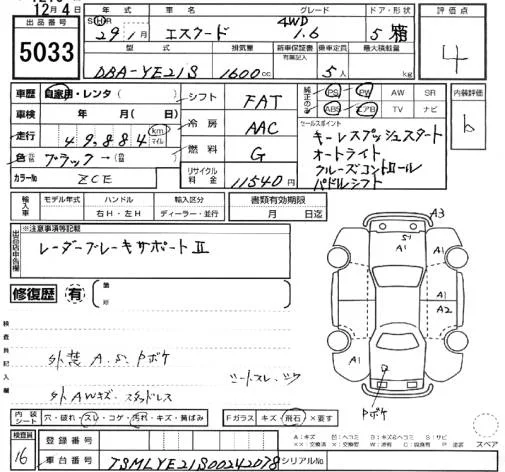 12月 4日
出品番号
5033
年式 車名 グレード ドア・形状 評価点
S H R 29年 1月 エスクード 4WD 1.6 5 箱
4
型式 排気量 新車保証書 乗車定員 最大積載量
有園記入
DBA-YE21S 1600cc 5人 kg
車歴 自家用・レンタ( )
シフト FAT
純正のみ PS PW AW SR
ABS エアB TV ナビ
内装評価
b
車検 年 月( 日)
冷房 AAC
セールスポイント
キーレスプッシュスタート
オートライト
クルーズコントロール
パドルシフト
走行 49,884 km マイル
色 ブラック→
燃料 G
カラーNo ZCE
リサイクル料金 11540円
輸入車 モデル年式 ハンドル 輸入区分 書類有効期限
年 右H・左H ディーラー・並行 月 日迄
※注意事項等記載
出品店申告欄
レーダーブレーキサポートⅡ
修復歴 有 箇所
検査員記入欄
外装 A.S.Pボケ
シートスレ・
外AWキズ・スタッドレス
A3
S1
A1
A1
A1
A2
A1
A1
Pボケ
内装シート 穴・破れ・スレ・コゲ・汚れ・キズ・黄ばみ
Fガラス キズ・飛石・×要す
A:キズ
××:交換済 ×:要交換 W:波有 C:腐食有 P:塗装
スペア
検査員
16
登録番号
車台番号 TSMLYE21S00242078 シリアルNo.